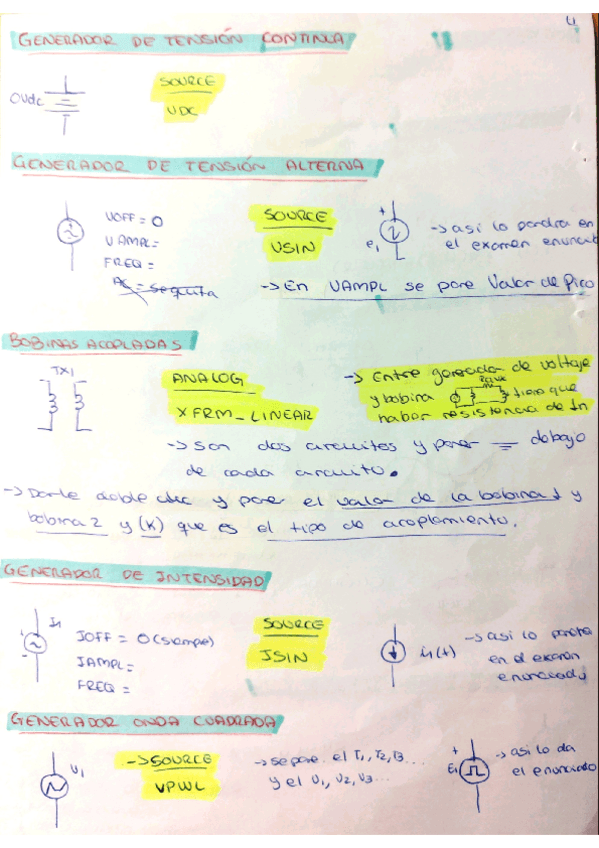 4
GENERADOR DE TENSIÓN CONTINUA
0Vdc
SOURCE
VDC
GENERADOR DE TENSIÓN ALTERNA
VOFF = 0
VAMPL=
FREQ =
AC = se quita
SOURCE
VSIN
+
e1
-> así lo pondra en
el examen enunciat
-> En VAMPL se pone Valor de Pico
BOBINAS ACOPLADAS
TX1
ANALOG
XFRM_LINEAR
-> Entre generador de voltaje
y bobina tiene que
haber resistencia de 1n
-> Son dos circuitos y poner debajo
de cada circuito.
-> Darle doble clic y poner el valor de la bobina 1 y
bobina 2 y (K) que es el tipo de acoplamiento.
GENERADOR DE INTENSIDAD
I1
+
-
IOFF = 0 (siempre)
IAMPL=
FREQ =
SOURCE
ISIN
i1(t)
-> así lo pondra
en el examen
enunciado
GENERADOR ONDA CUADRADA
V1
-> SOURCE
VPWL
-> se pone el T1, T2, T3...
y el V1, V2, V3...
+
E1
-
-> así lo da
el enunciado